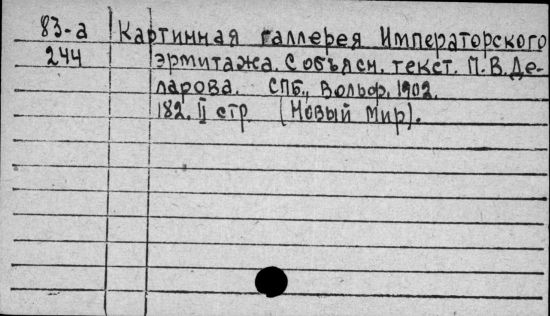 83-а Картинная галлерея Императорского
244 эрмитажа. С объясн. текст. П.В.Де-
ларова. СПБ., Вольф, 1902.
182, II стр. (Новый Мир).